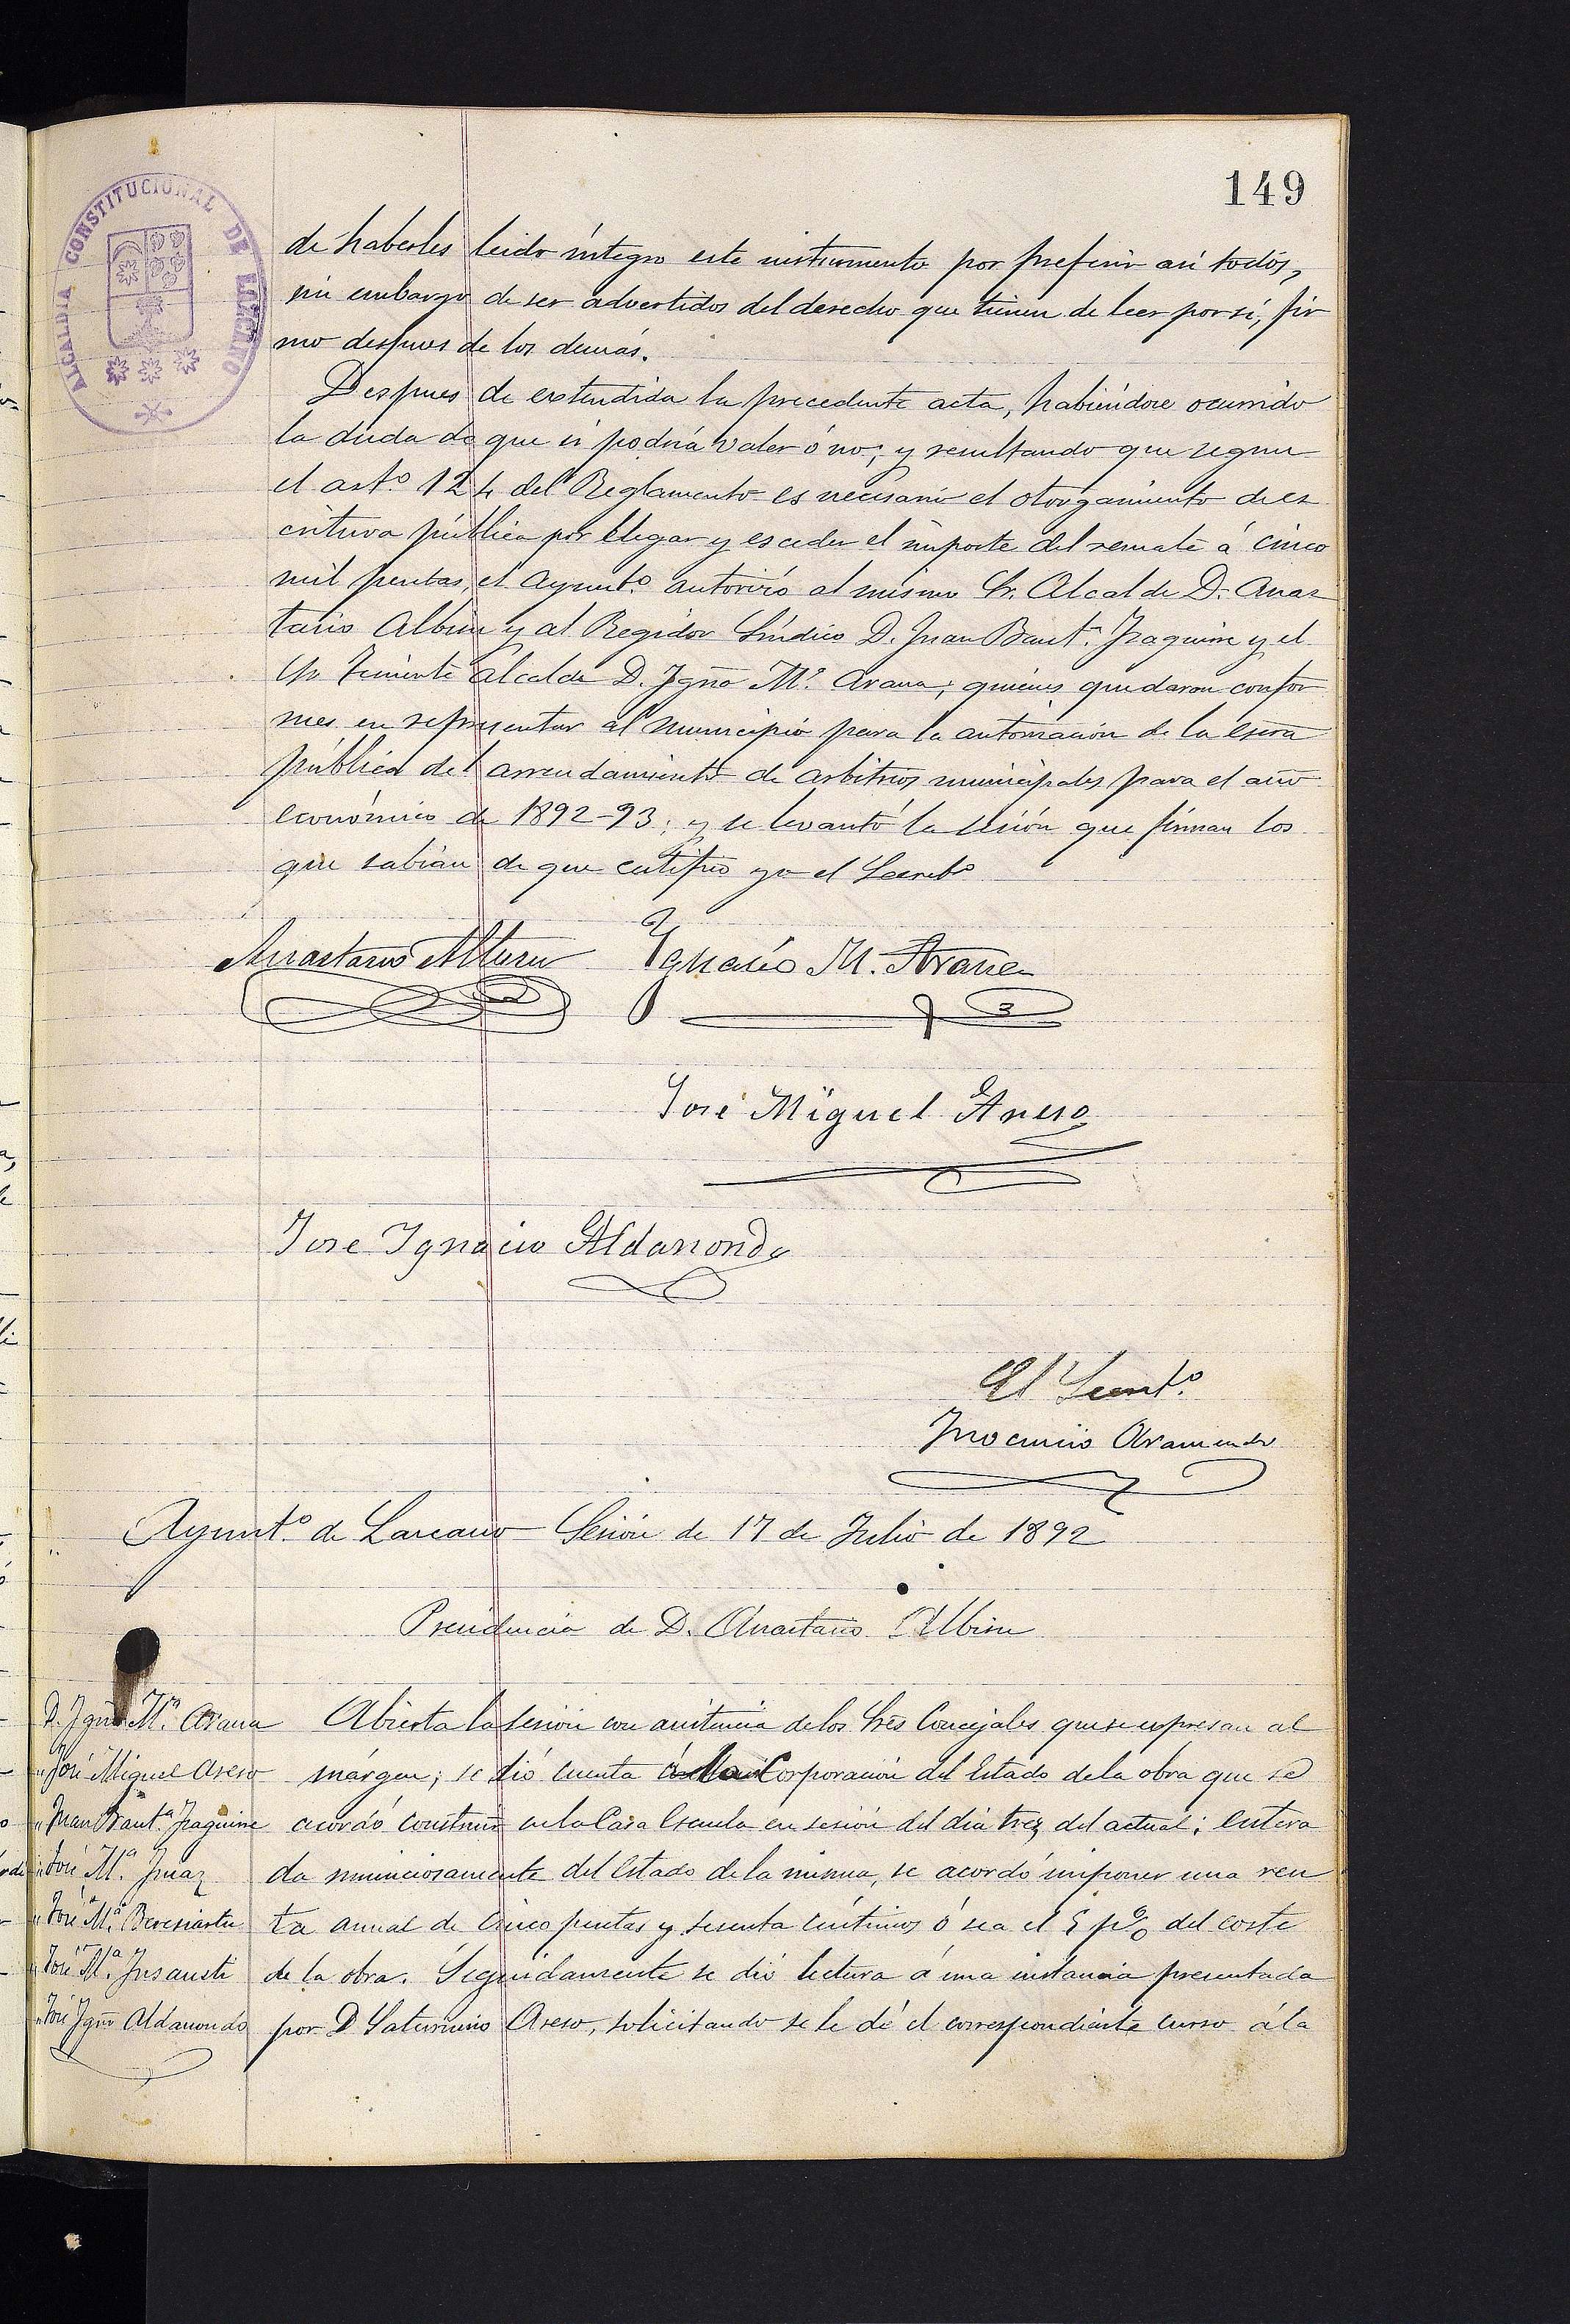 149
ALCALDIA CONSTITUCIONAL DE LAZCANO
de haberles leido íntegro este instrumento por preferir asi todos,
sin embargo de ser advertidos del derecho que tienen de leer por sí, fir
mo despues de los demás.
Despues de extendida la precedente acta, habiéndose ocurrido
la duda de que si podria valer ó no; y resultando que segun
el art.º 124 del Reglamento es necesario el otorgamiento de es
critura pública por llegar y esceder el importe del remate á cinco
mil pesetas, el Ayunt.º autorizó al mismo Sr. Alcalde D. Anas
tasio Albisu y al Regidor Síndico D. Juan Baut.ª Izaguirre y el
Sr. Teniente Alcalde D. Igño M.ª Arana; quienes quedaron confor
mes en representar al municipio para la autorización de la escra
pública del arrendamiento de arbitrios municipales para el año
económico de 1892-93; y se levantó la sesión que firman los
que sabían de que certifico yo el Secretº
Anastasio Albisu Ygnacio M. Arana
José Miguel Areso
Jose Ygnacio Aldasoro
El Secret.º
Ynocencio Aramendi
Ayunt.º de Lazcano Sesión de 17 de Julio de 1892
Presidencia de D. Anastasio Albisu
D. Igño M.ª Arana
" José Miguel Areso
" Juan Baut.ª Izaguirre
" José M.ª
" José M.ª Beresiartu
" José M.ª Insausti
" José Igño Aldasoro
Abierta la sesion con asistencia de los Sres Concejales que se espresan al
márgen; se dió cuenta á la Corporación del Estado de la obra que se
acordó construir en la Casa Escuela en sesión del dia tres del actual; entera
da minuciosamente del Estado de la misma, se acordó imponer una ren
ta anual de cinco pesetas y sesenta céntimos ó sea el 5 p% del coste
de la obra. Seguidamente se dió lectura á una instancia presentada
por D Saturnino Areso, solicitando se le dé el correspondiente curso á la